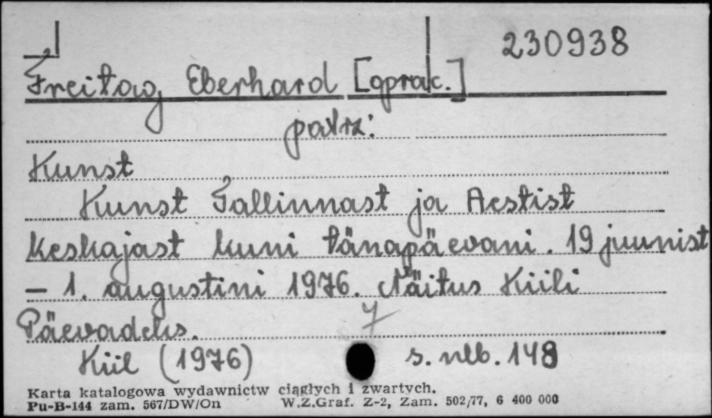 230938
Freitag Eberhard [oprac.]
patrz:
Kunst
Kunst Tallinnast ja Aestist
keskajast kuni tänapäevani. 19 juunist
– 1. augustini 1976. Näitus Kiili
Päevadeks.
Kiil (1976) s. nlb. 148
Karta katalogowa wydawnictw ciągłych i zwartych.
Pu-B-144 zam. 567/DW/On W.Z.Graf. Z-2, Zam. 502/77, 6 400 000